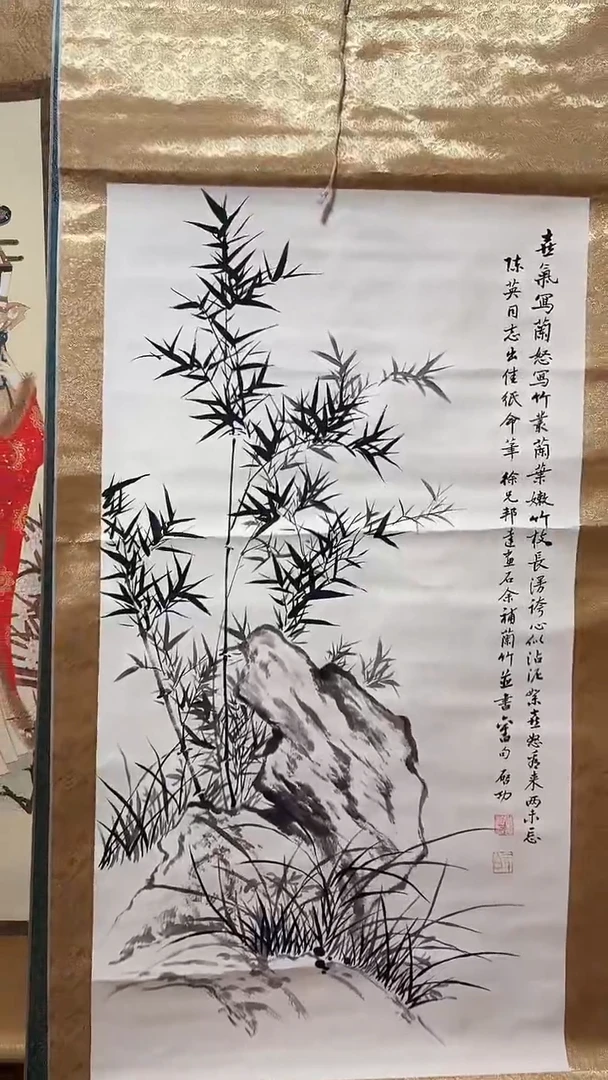 喜氣寫蘭怒寫竹叢蘭葉嫩竹枝長漫誇心似沾泥絮喜怒看來兩未忘
陳英同志出佳紙命筆 徐兄邦達畫石余補蘭竹並書舊句 啟功